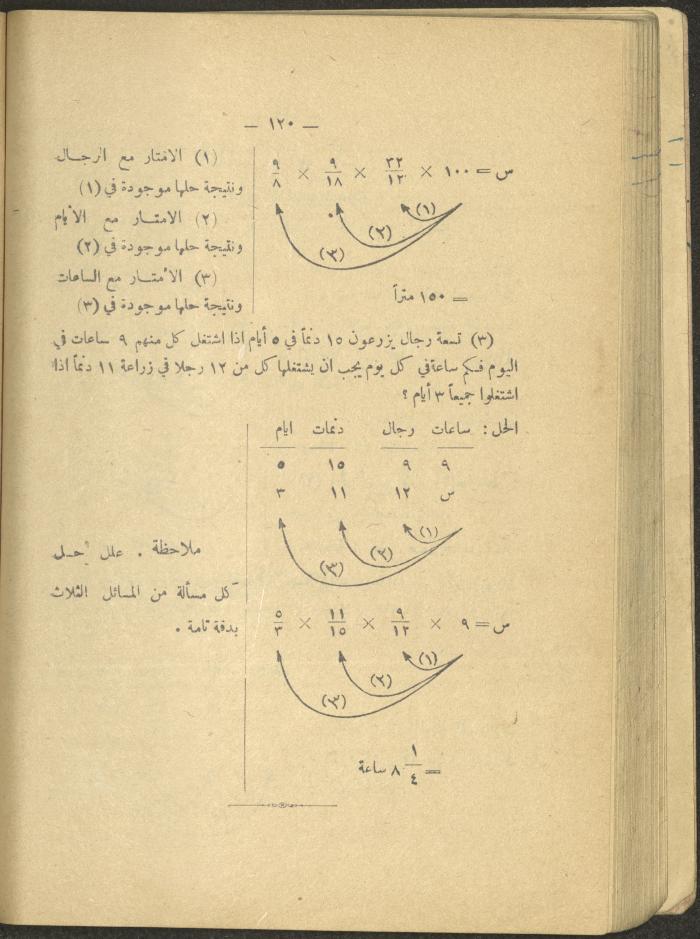 — ١٢٠ —
س = ١٠٠ × ٣٢/١٢ × ٩/١٨ × ٩/٨
(١) (٢) (٣)
= ١٥٠ متراً
(١) الامتار مع الرجال
ونتيجة حلها موجودة في (١)
(٢) الامتار مع الأيام
ونتيجة حلها موجودة في (٢)
(٣) الأمتار مع الساعات
ونتيجة حلها موجودة في (٣)
(٣) تسعة رجال يزرعون ١٥ دنماً في ٥ أيام اذا اشتغل كل منهم ٩ ساعات في
اليوم فكم ساعة في كل يوم يجب ان يشتغلها كل من ١٢ رجلا في زراعة ١١ دنماً اذا
اشتغلوا جميعاً ٣ أيام ؟
الحل : ساعات رجال دنمات ايام
٩ ٩ ١٥ ٥
س ١٢ ١١ ٣
(١) (٢) (٣)
س = ٩ × ٩/١٢ × ١١/١٥ × ٥/٣
(١) (٢) (٣)
= ٨ ١/٤ ساعة
ملاحظة . علل حل
كل مسألة من المسائل الثلاث
بدقة تامة .